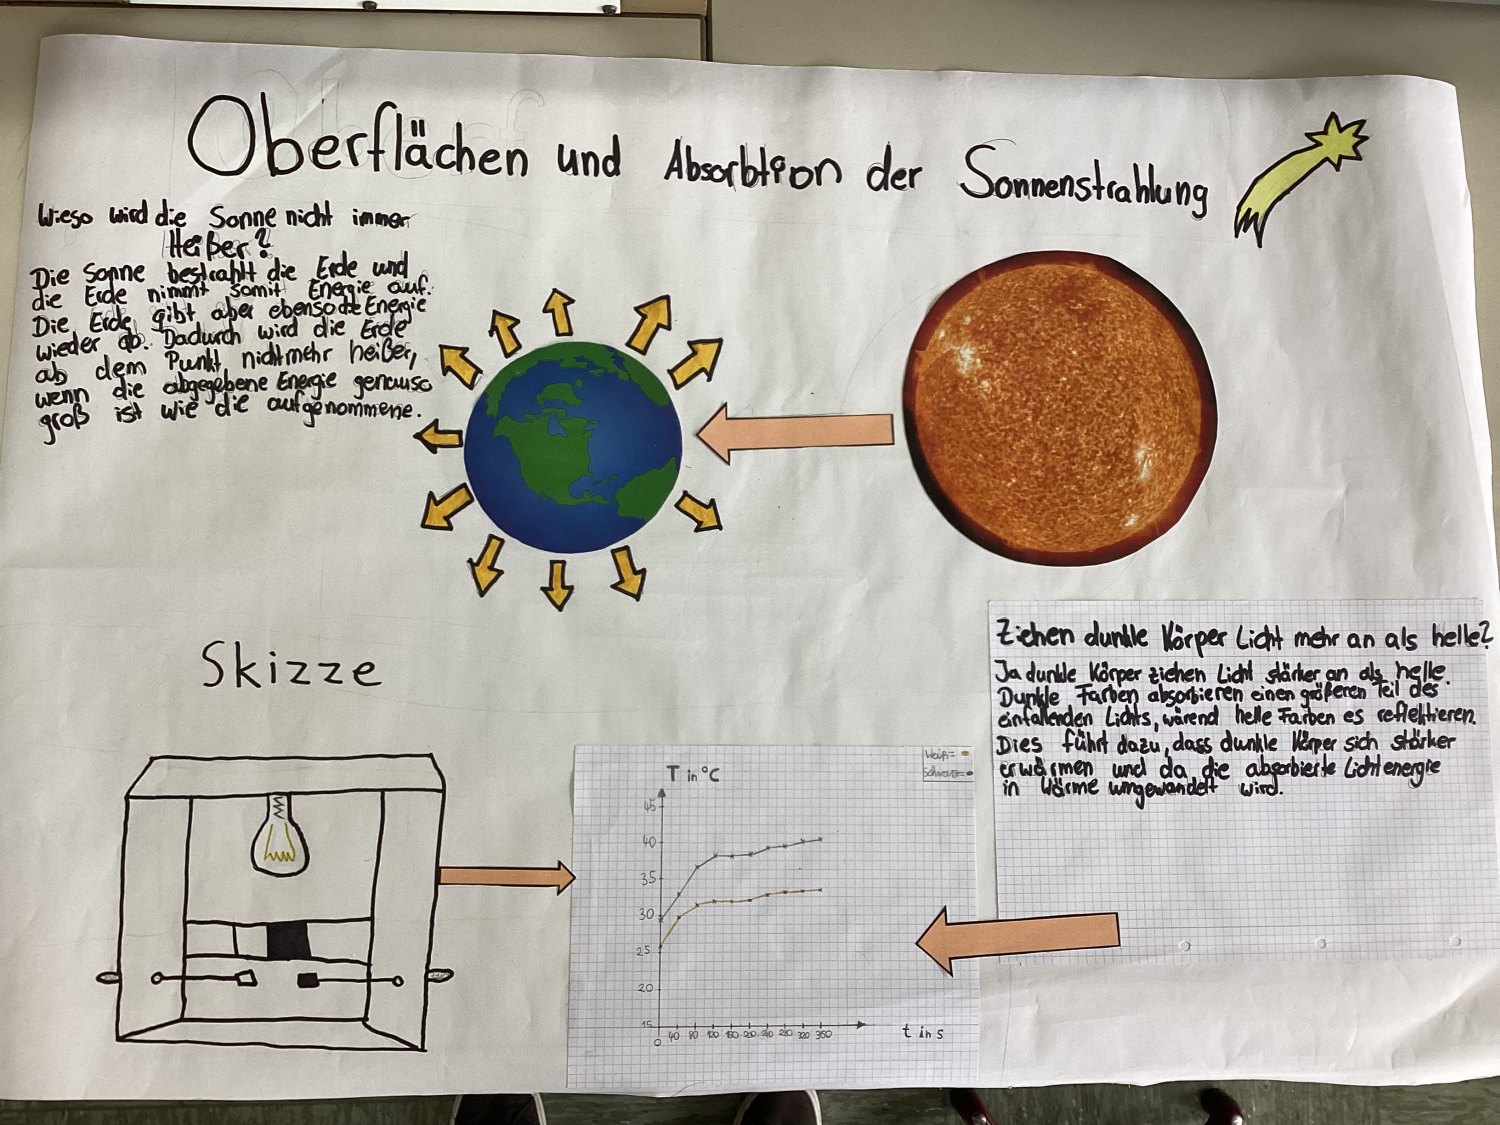 Oberflächen und Absorbtion der Sonnenstrahlung
Wieso wird die Sonne nicht immer
Heißer?
Die Sonne bestrahlt die Erde und
die Erde nimmt somit Energie auf.
Die Erde gibt aber ebenso die Energie
wieder ab. Dadurch wird die Erde
ab dem Punkt nichtmehr heißer,
wenn die abgegebene Energie genauso
groß ist wie die aufgenommene.
Skizze
Ziehen dunkle Körper Licht mehr an als helle?
Ja dunkle Körper ziehen Licht stärker an als helle.
Dunkle Farben absorbieren einen größeren Teil des
einfallenden Lichts, wärend helle Farben es reflektieren.
Dies führt dazu, dass dunkle Körper sich stärker
erwärmen und da die absorbierte Lichtenergie
in Wärme umgewandelt wird.
Weiß=
Schwarz=
T in °C
45
40
35
30
25
20
15
0 40 80 120 160 200 240 280 320 360
t in s